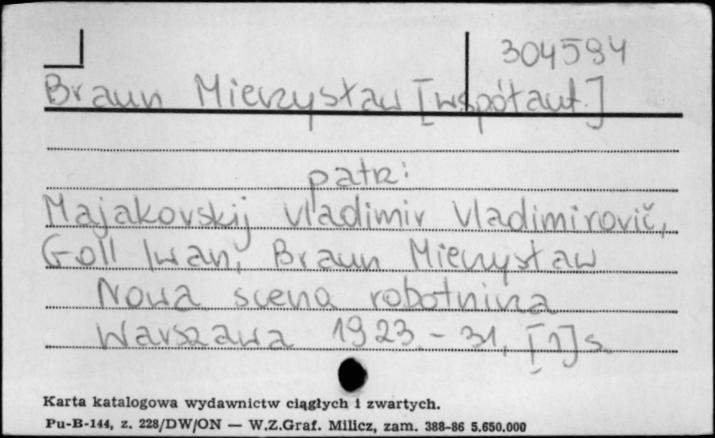 304594
Braun Mieczysław [współaut.]
patrz:
Majakovskij Vladimir Vladimirovič,
Goll Iwan, Braun Mieczysław
Nowa scena robotnicza
Warszawa 1923. - 31, [1] s.
Karta katalogowa wydawnictw ciągłych i zwartych.
Pu-B-144, z. 228/DW/ON — W.Z.Graf. Milicz, zam. 388-86 5.650.000